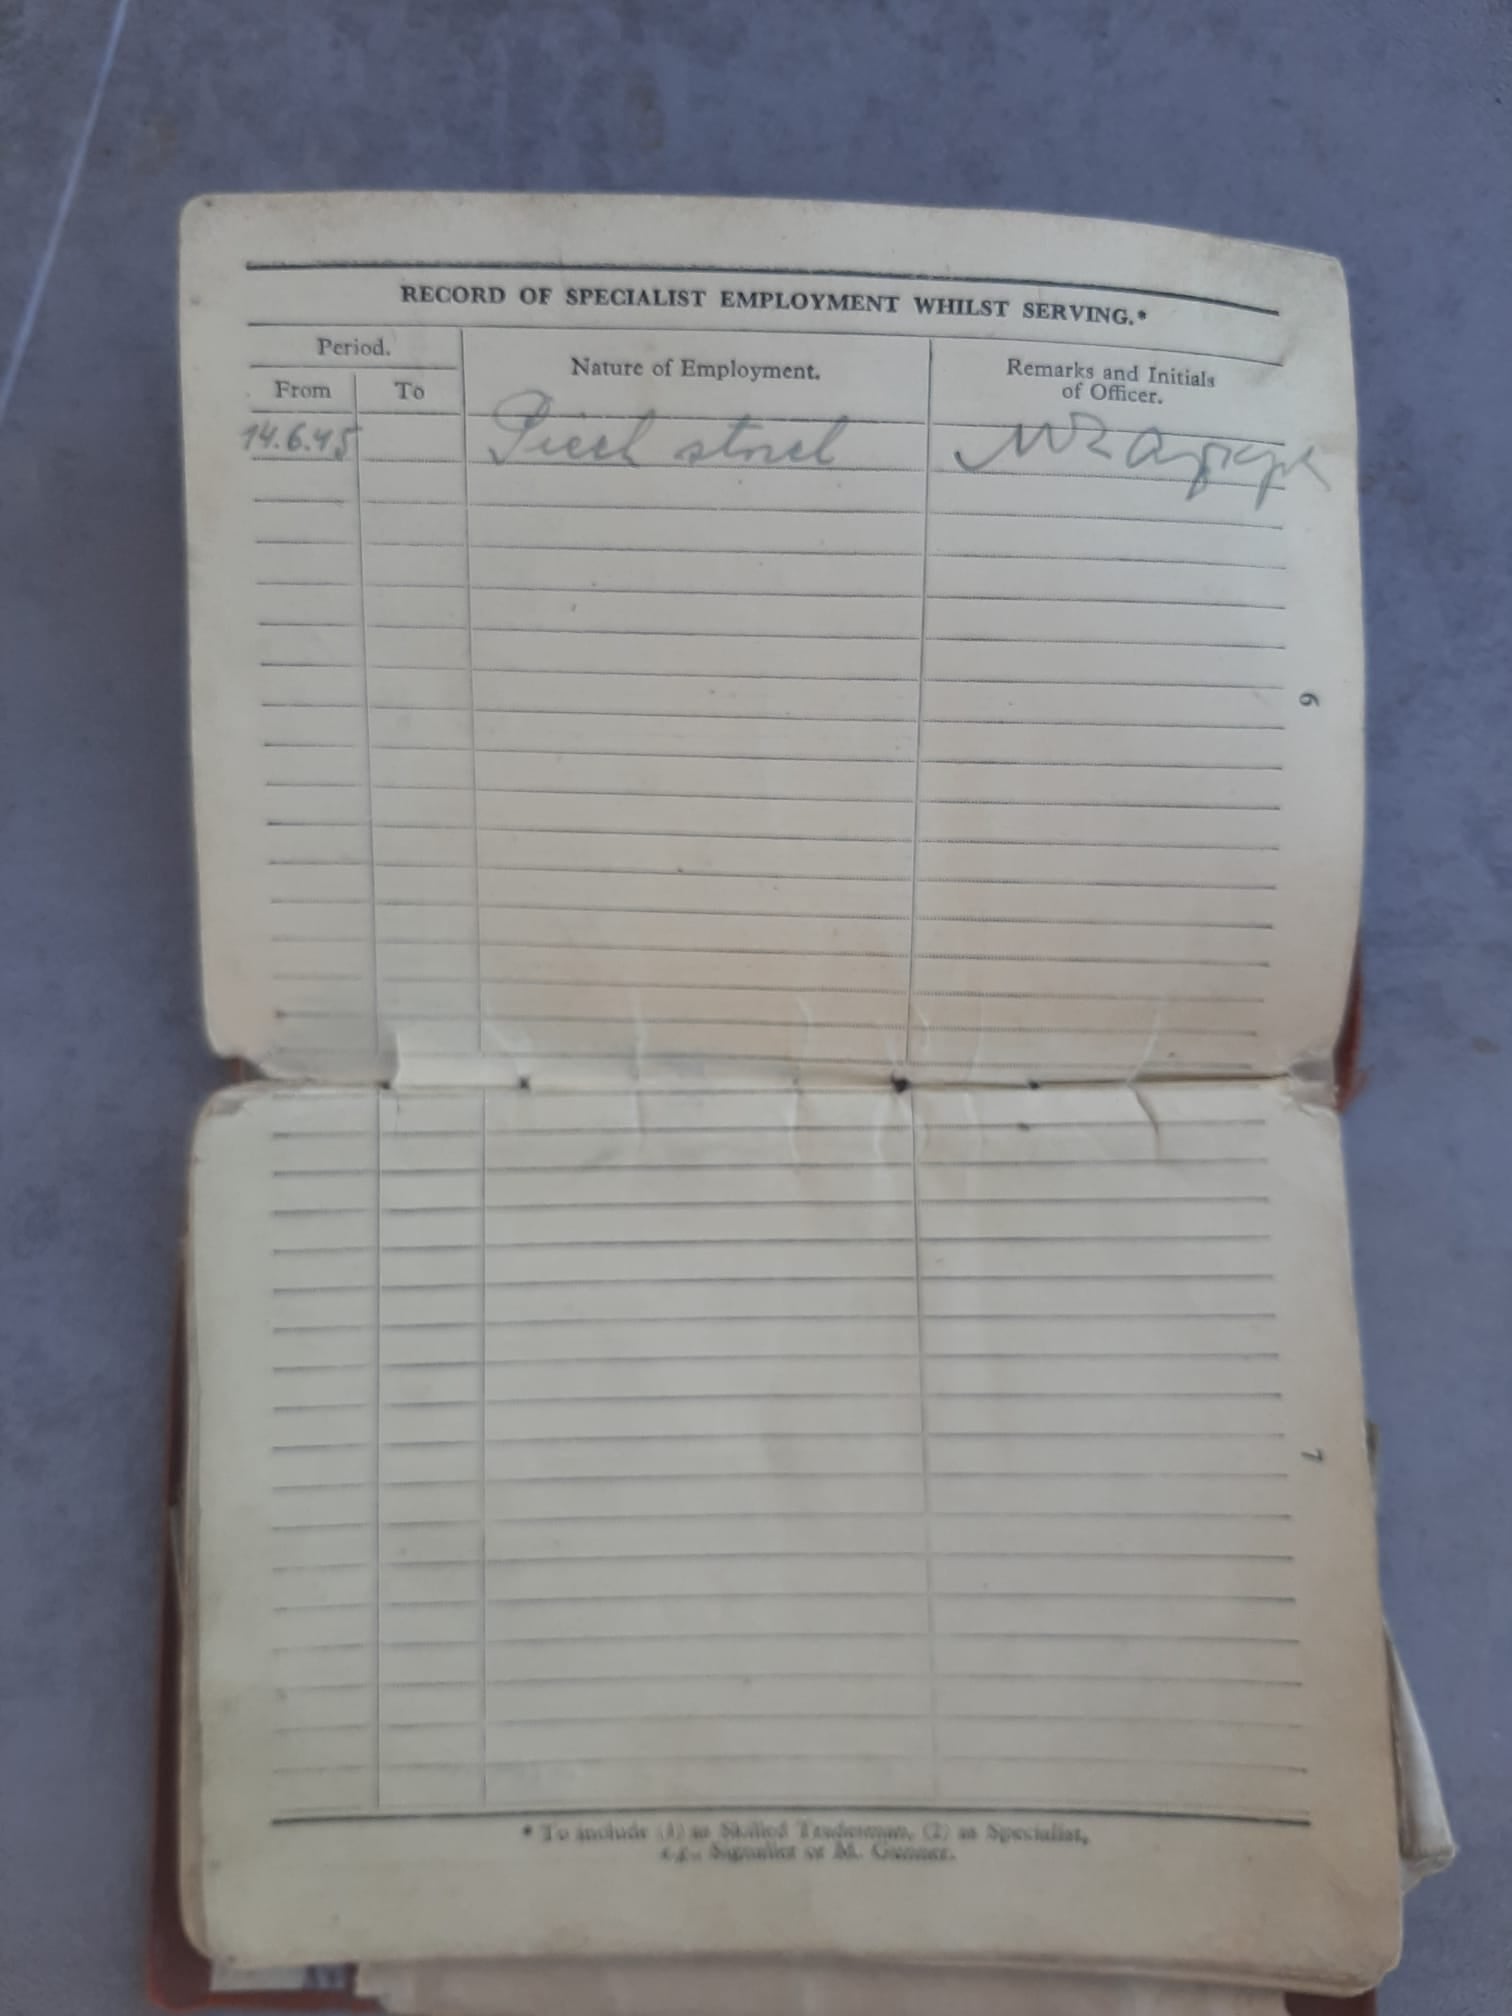 RECORD OF SPECIALIST EMPLOYMENT WHILST SERVING.*
Period.
From To
Nature of Employment.
Remarks and Initials
of Officer.
14.6.45
6
7
* To include (1) as Skilled Tradesman, (2) as Specialist,
e.g., Signaller or M. Gunner.